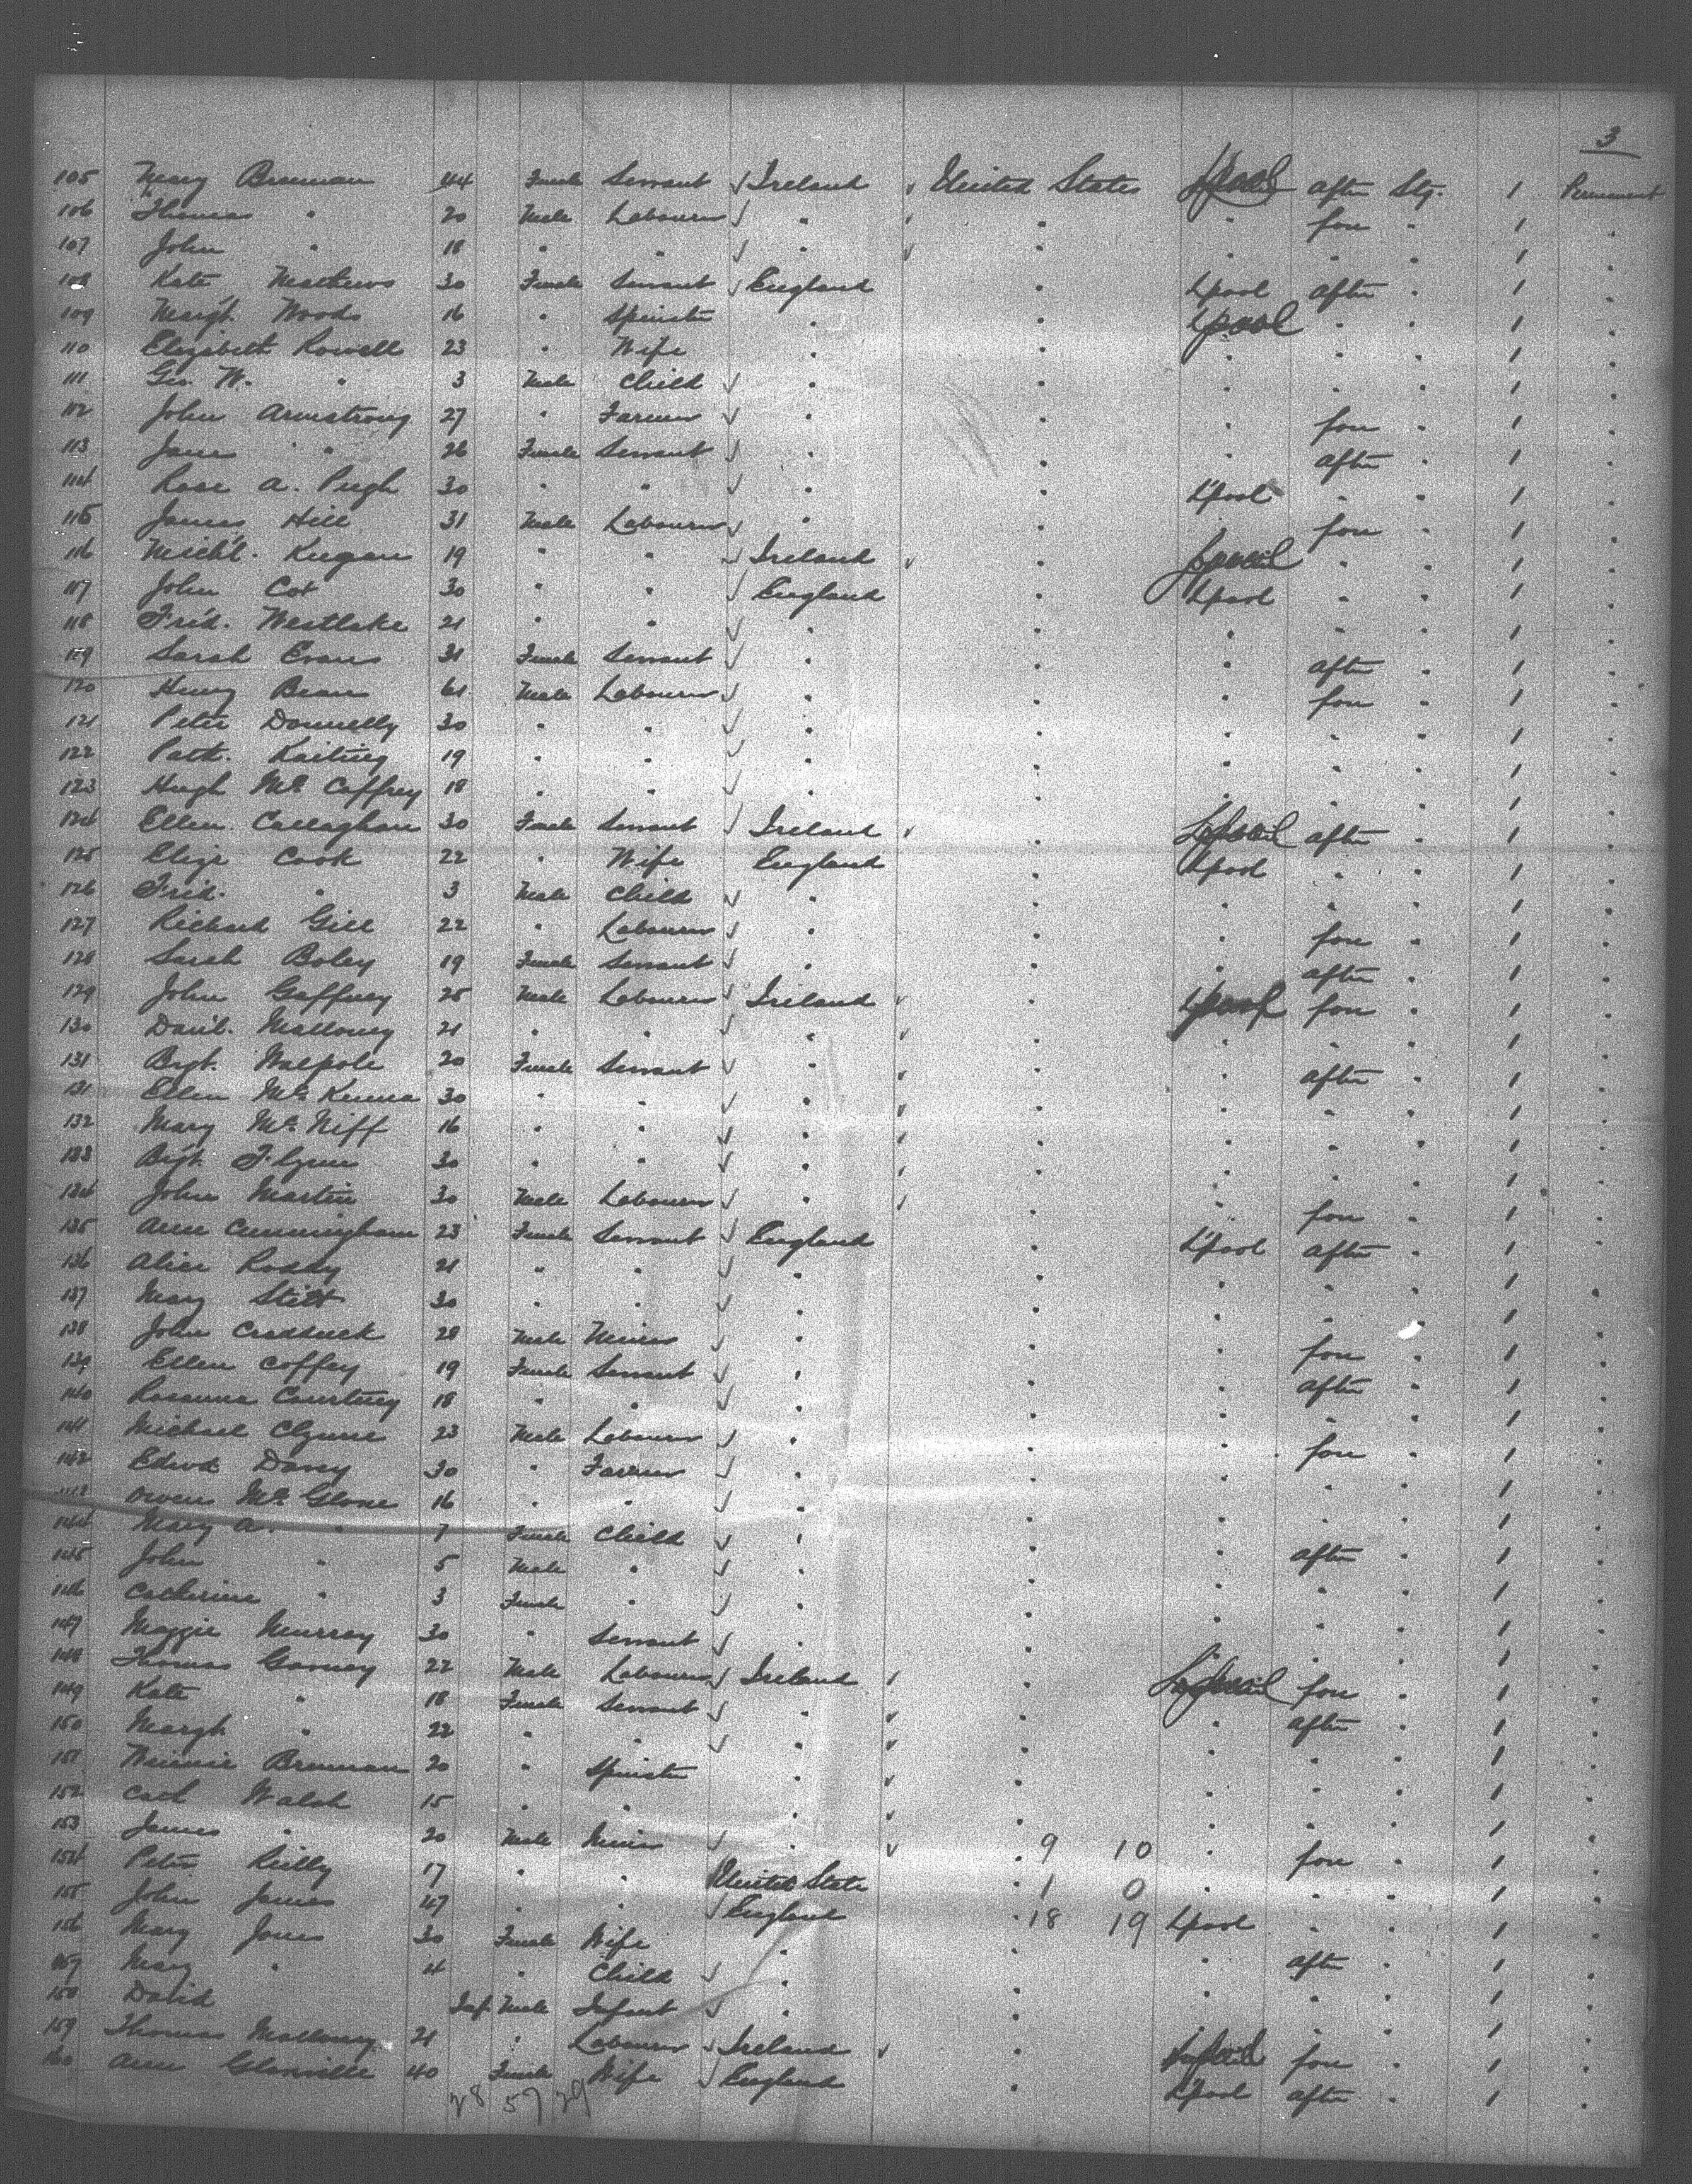 3
105 Mary Brennan 44 Female Servant √ Ireland √ United States L'pool after Stg. 1 Permanent
106 Thomas " 20 Male Labourer √ " √ " " fore " 1 "
107 John " 18 " " √ " √ " " " " 1 "
108 Kate Mathews 30 Female Servant √ England " L'pool after " 1 "
109 Margt. Woods 16 " Spinster " " L'pool " " 1 "
110 Elizabeth Rowell 23 " Wife " " " " " 1 "
111 Geo. W. " 3 Male Child √ " " " " " 1 "
112 John Armstrong 27 " Farmer √ " " " fore " 1 "
113 Jane " 26 Female Servant √ " " " after " 1 "
114 Rose A. Pugh 30 " " √ " " L'pool " " 1 "
115 James Hill 31 Male Labourer √ " " " fore " 1 "
116 Mich'l. Keegan 19 " " √ Ireland √ " " " 1 "
117 John Cox 30 " " √ England " L'pool " " 1 "
118 Fred. Westlake 21 " " √ " " " " " 1 "
119 Sarah Evans 31 Female Servant √ " " " after " 1 "
120 Henry Bean 61 Male Labourer √ " " " fore " 1 "
121 Peter Donnelly 30 " " √ " " " " " 1 "
122 Patk. Kaiting 19 " " √ " " " " " 1 "
123 Hugh McCaffrey 18 " " √ " " " " " 1 "
124 Ellen Callaghan 30 Female Servant √ Ireland √ " after " 1 "
125 Eliza Cook 22 " Wife England " L'pool " " 1 "
126 Fred. " 3 Male Child √ " " " " " 1 "
127 Richard Gill 22 " Labourer √ " " " fore " 1 "
128 Sarah Boley 19 Female Servant √ " " " after " 1 "
129 John Gaffney 25 Male Labourer √ Ireland √ " L'pool fore " 1 "
130 Dan'l. Malloney 21 " " √ " √ " " " " 1 "
131 Bigt. Walpole 20 Female Servant √ " √ " " after " 1 "
131 Ellen McKenna 30 " " √ " √ " " " " 1 "
132 Mary McNiff 16 " " √ " √ " " " " 1 "
133 Bigt. Flynn 30 " " √ " √ " " " " 1 "
134 John Martin 30 Male Labourer √ " √ " " fore " 1 "
135 Ann Cunningham 23 Female Servant √ England " L'pool after " 1 "
136 Alice 21 " " √ " " " " " 1 "
137 Mary Stitt 30 " " √ " " " " " 1 "
138 John Cradduck 28 Male Miner √ " " " fore " 1 "
139 Ellen Coffey 19 Female Servant √ " " " after " 1 "
140 Rosanna Courtney 18 " " √ " " " " " 1 "
141 Michael Clynne 23 Male Labourer √ " " " fore " 1 "
142 Edwd Darcy 30 " Farmer √ " " " " " 1 "
143 Owen McGlone 16 " " √ " " " " " 1 "
144 Mary A. " 7 Female Child √ " " " after " 1 "
145 John " 5 Male " √ " " " " " 1 "
146 Catherine " 3 Female " √ " " " " " 1 "
147 Maggie Murray 30 " Servant √ " " " " " 1 "
148 Thomas Garvey 22 Male Labourer √ Ireland √ " fore " 1 "
149 Kate " 18 Female Servant √ " √ " " after " 1 "
150 Margt. " 22 " " √ " √ " " " " 1 "
151 Winnie Brennan 20 " Spinster " √ " " " " 1 "
152 Cath Walsh 15 " " " √ " " " " 1 "
153 James " 20 Male Miner √ " √ " 9 10 " fore " 1 "
154 Peter Reilly 17 " " United States " 1 0 " " " 1 "
155 John James 47 " " √ England " 18 19 L'pool " " 1 "
156 Mary Jones 30 Female Wife " " " after " 1 "
157 Mary " 4 " Child √ " " " " " 1 "
158 David Inf. Male Infant √ " " " " " 1 "
159 Thomas Malloney 21 " Labourer √ Ireland √ " fore " 1 "
160 Ann Glanville 40 Female Wife √ England " L'pool after " 1 "
28 57 29